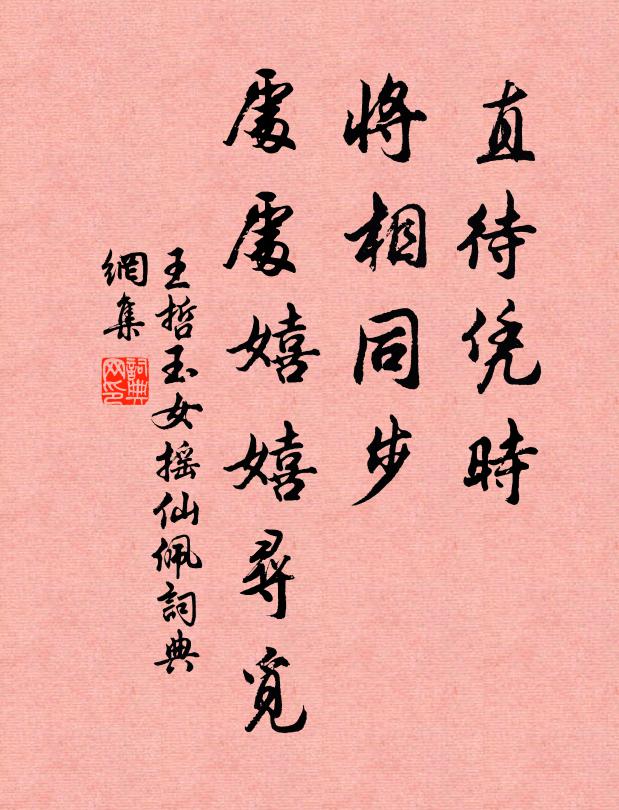 直待凭時
將相同步
處處嬉嬉尋覓
王哲玉女摇仙佩詞典
網集
詞典
网印